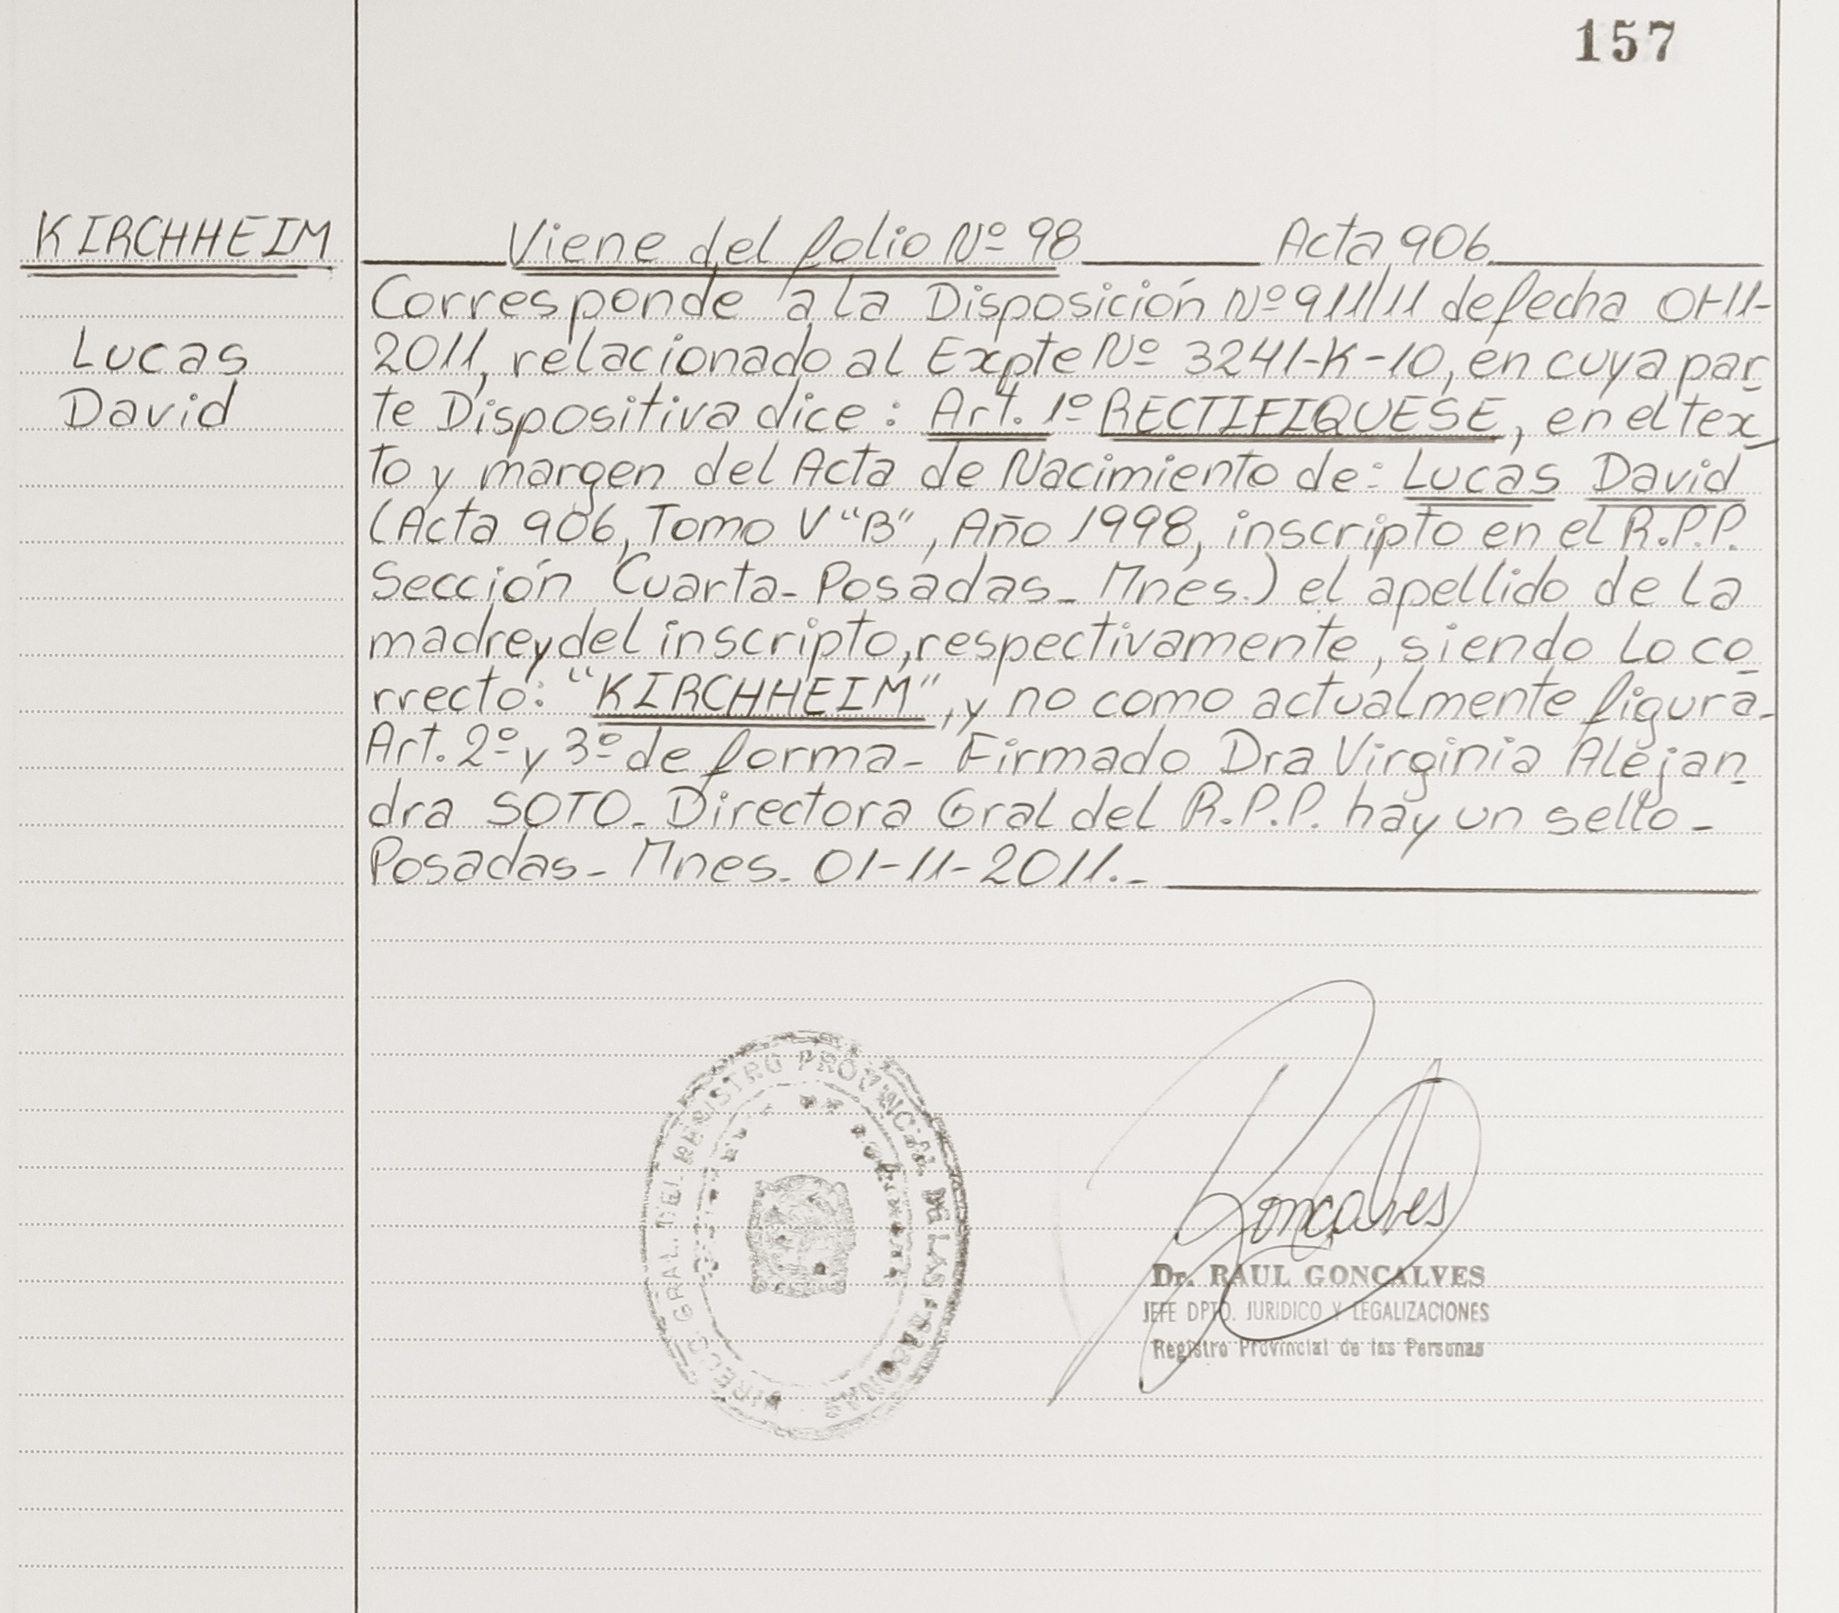 157
KIRCHHEIM
Lucas
David
Viene del folio Nº 98 Acta 906
Corresponde a la Disposición Nº 911/11 de fecha 01-11-
2011, relacionado al Expte Nº 3241-K-10, en cuya par
te Dispositiva dice: Art. 1º RECTIFIQUESE, en el tex
to y margen del Acta de Nacimiento de: Lucas David
(Acta 906, Tomo V "B", Año 1998, inscripto en el R.P.P.
Sección Cuarta- Posadas- Mnes.) el apellido de la
madre y del inscripto, respectivamente, siendo lo co
rrecto: "KIRCHHEIM", y no como actualmente figura-
Art. 2º y 3º de forma- Firmado Dra Virginia Alejan
dra SOTO- Directora Gral del R.P.P. hay un sello-
Posadas- Mnes- 01-11-2011.-
DIRECC. GRAL. DEL REGISTRO PROVINCIAL DE LAS PERSONAS
Goncalves
Dr. RAUL GONCALVES
JEFE DPTO. JURIDICO Y LEGALIZACIONES
Registro Provincial de las Personas